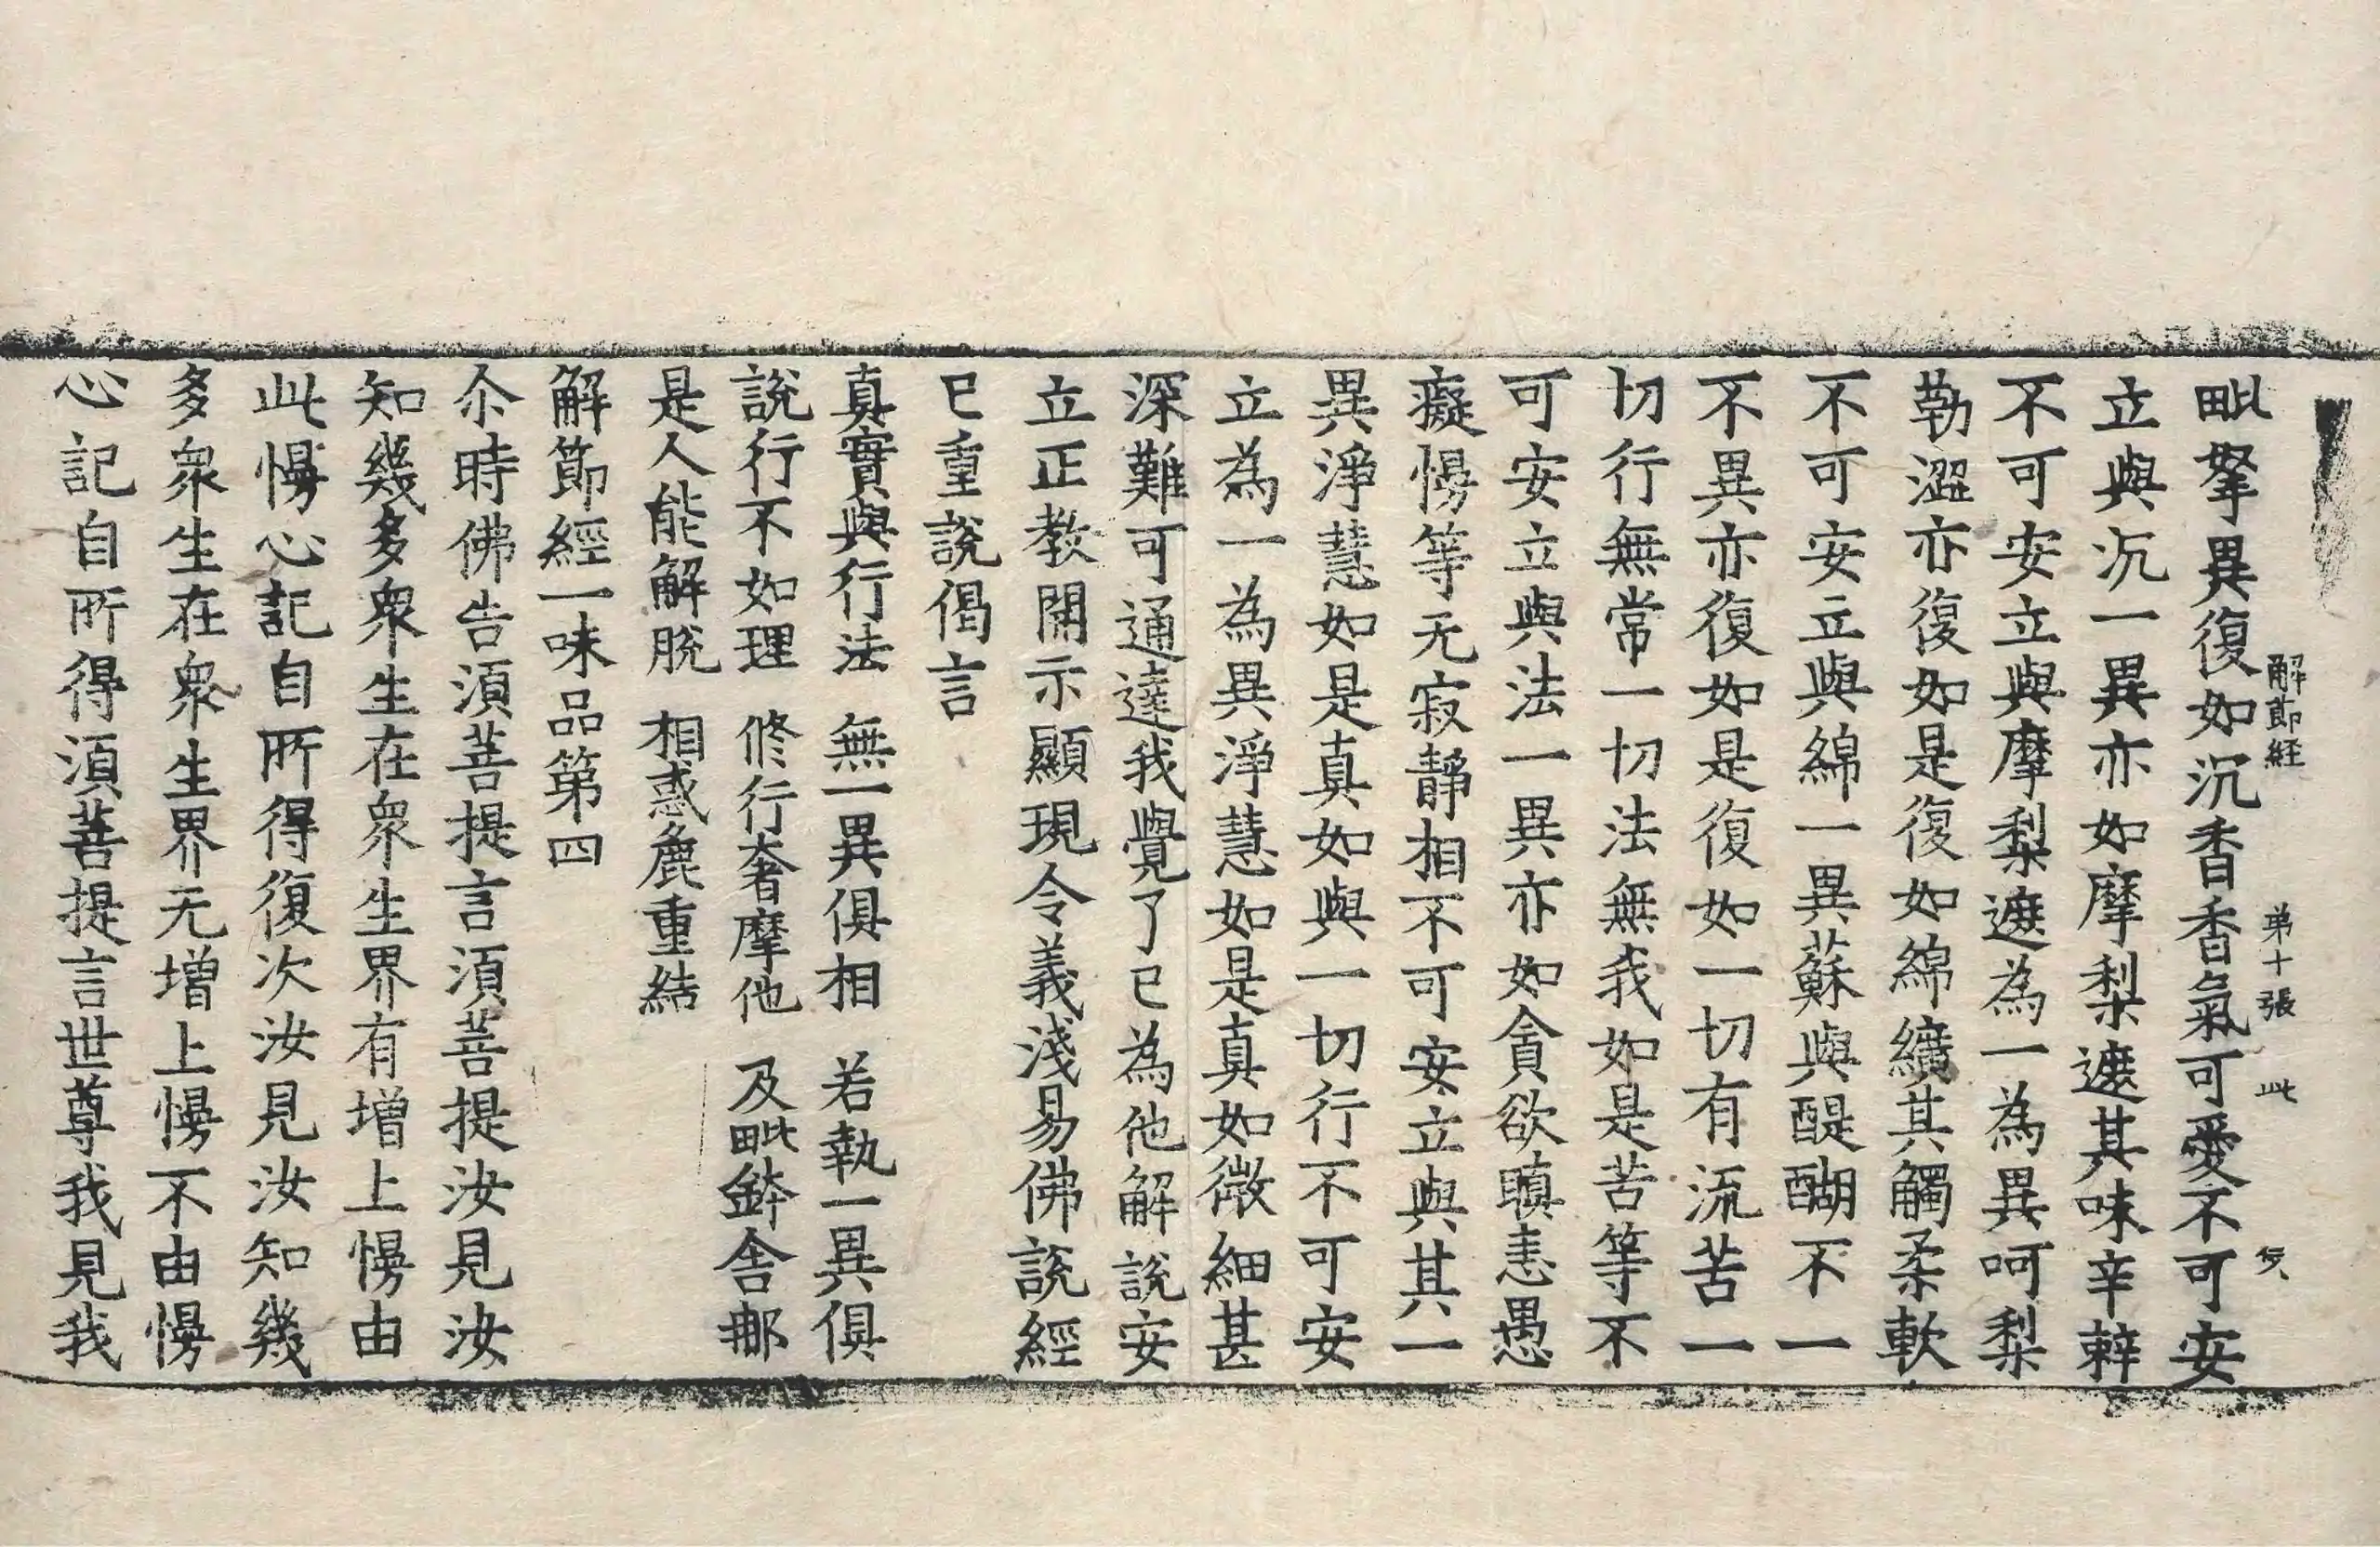 解節経 第十張 此
毗拏異復如沉香香氣可愛不可安
立與沉一異亦如摩梨遮其味辛辢
不可安立與摩梨遮為一為異呵梨
勒澀亦復如是復如綿纊其觸柔軟
不可安立與綿一異蘇與醍醐不一
不異亦復如是復如一切有流苦一
切行無常一切法無我如是苦等不
可安立與法一異亦如貪欲瞋恚愚
癡慢等无寂靜相不可安立與其一
異淨慧如是真如與一切行不可安
立為一為異淨慧如是真如微細甚
深難可通達我覺了已為他解說安
立正教開示顯現令義淺易佛說經
已重說偈言
真實與行法 無一異俱相 若執一異俱
說行不如理 修行奢摩他 及毗鉢舍那
是人能解脫 相惑麁重結
解節經一味品第四
尒時佛告湏菩提言湏菩提汝見汝
知幾多衆生在衆生界有增上慢由
此慢心記自所得復次汝見汝知幾
多衆生在衆生界无增上慢不由慢
心記自所得湏菩提言世尊我見我